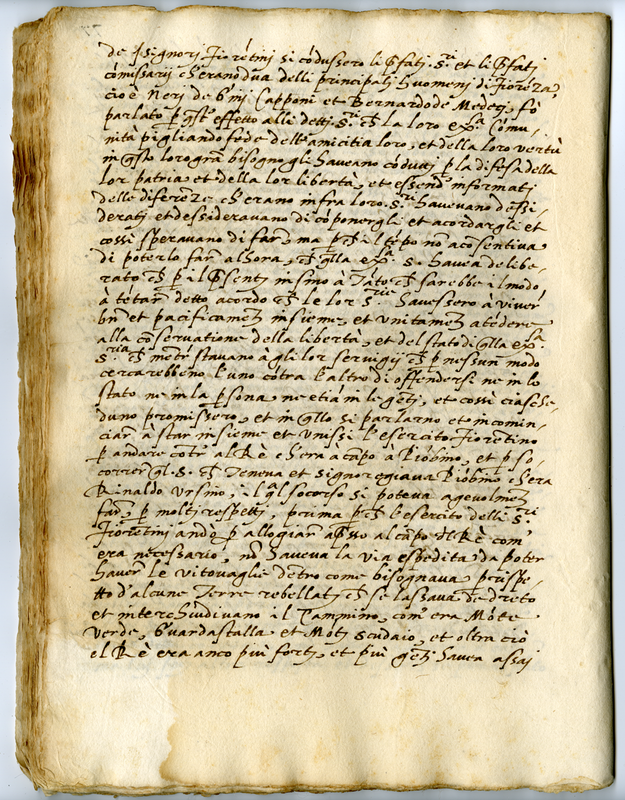 de Signorj Fioretinj si códussero li Pfatj Sri et li Pfatj
cómissarij ch'erano dua delli principalj huomenj di Fioréza,
cioè Nerj de Ginj Capponj et Bernardo de Medecj, fó
parlato p qsto effetto alle dettj Srie ch la loro exsa Cómu-
nità pigliando fede dell'amicitia loro, et della loro vertù
in qsto loro grã bisogno gli haveano códuttj p la difesa della
lor patria et della lor libertà, et essendo informatj
delle diferéze ch'erano infra loro Srie havevano dessi-
deratj et dessideravano di cóponergli et acordargli et
cossì speravano di far, ma pch il tépo nõ acósentiva
di poterlo far alhora, ch qlla exsa S. havea delibe-
rato ch p il Psentj insino à Táto ch sarebbe il modo
à tétar detto acordo ch le lor Srie havessero à viver
bñ et pacificamen insieme, et unitamen atédere
alla cóservatione della libertà, et del stato di qlla exsa
Sria ch mentr stavano à gli lor servigij ch p nessun modo
cercarebbeno l'uno cótra l'altro di offendersi ne in lo
stato ne in la psona ne etiá in le gentj, et cossì ciasche-
duno promissero, et in qllo si parlarno et incomin-
ciar à star insieme et unissi l'esercito fiorentino
p andare contr al Rè ch'era à cápo à Piobino, et p so-
correr ql S. ch Teneva et signoregiava Piobino ch'era
Rinaldo Ursino, il qal socorso si poteva agevolmen
far p molti respettj, prima pch l'esercito delli Sri
Fioretinj andè p allogiar apsso al cápo dl Rè com
era necessario, nõ haveva la via espedita da poter
haver le vitovaglie détro come bisognava p rispe-
tto d'alcune Terre rebellatj ch se lassava de dreto
et interchiudivano il Cammino, com era Móte
verde, Guardastalla et Mótj scudaio, et oltra ciò
el Rè era anco più fortj, et più gentj havea assaj